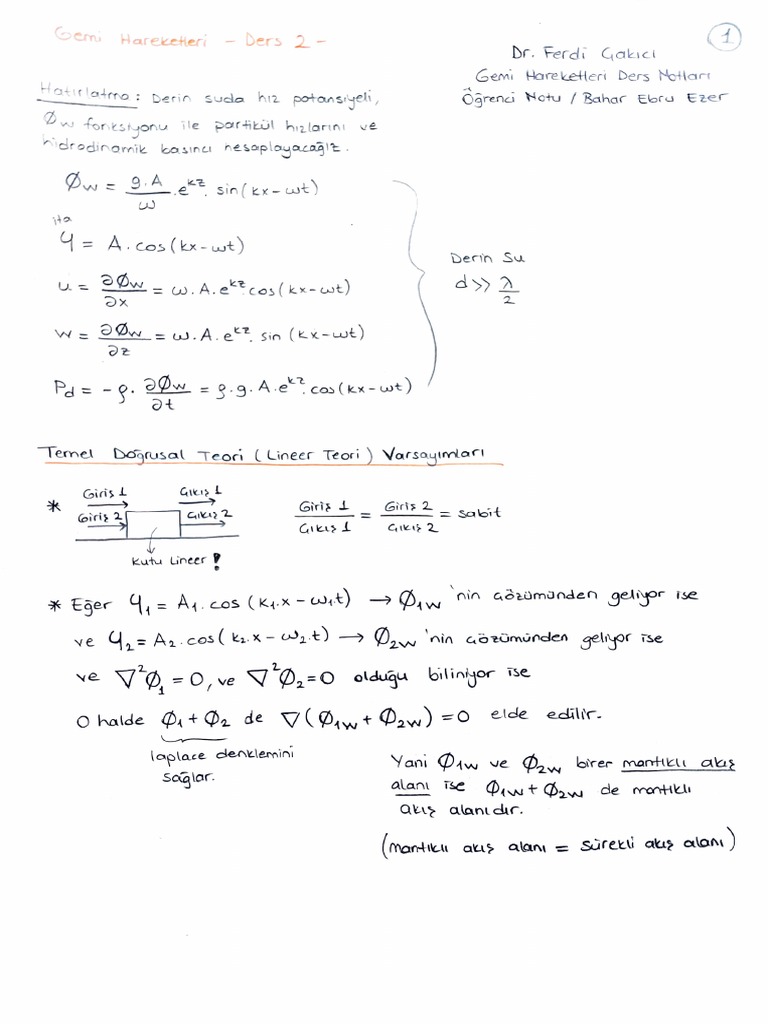 Gemi Hareketleri - Ders 2 -
1
Dr. Ferdi Çakıcı
Gemi Hareketleri Ders Notları
Öğrenci Notu / Bahar Ebru Ezer
Hatırlatma: Derin suda hız potansiyeli,
Øw fonksiyonu ile partikül hızlarını ve
hidrodinamik basıncı hesaplayacağız.
Øw = g.A/ω . e^kz . sin(kx-ωt)
Ψ = A.cos(kx-ωt)
u = ∂Øw/∂x = ω.A.e^kz.cos(kx-ωt)
w = ∂Øw/∂z = ω.A.e^kz. sin (kx-ωt)
Pd = - ρ. ∂Øw/∂t = ρ.g.A.e^kz.cos(kx-ωt)
Derin Su
d >> λ/2
Temel Doğrusal Teori (Lineer Teori) Varsayımları
* Giriş 1 Çıkış 1
Giriş 2 Çıkış 2
Kutu Lineer!
Giriş 1/Çıkış 1 = Giriş 2/Çıkış 2 = sabit
* Eğer Ψ1 = A1.cos (k1.x - ω1.t) → Ø1w 'nin çözümünden geliyor ise
ve Ψ2 = A2.cos(k2.x - ω2.t) → Ø2w 'nin çözümünden geliyor ise
ve ∇²Ø1 = 0, ve ∇²Ø2 = 0 olduğu biliniyor ise
O halde Ø1 + Ø2 de ∇(Ø1w + Ø2w) = 0 elde edilir.
laplace denklemini
sağlar.
Yani Ø1w ve Ø2w birer mantıklı akış
alanı ise Ø1w + Ø2w de mantıklı
akış alanıdır.
(mantıklı akış alanı = sürekli akış alanı)